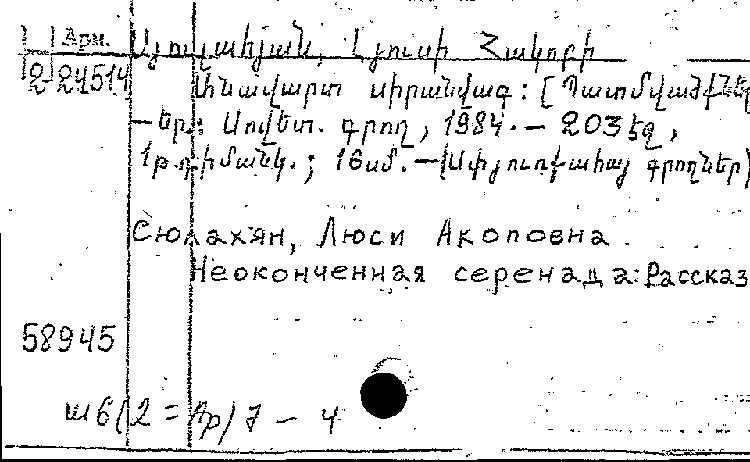 Арм.
2-24514
Սյուլահյան, Լյուսի Հակոբի
Անավարտ սիրանվագ: [Պատմվածքներ
-Եր.: Սովետ. գրող, 1984. - 203 էջ,
1թ. դիմանկ.; 16սմ. - (Սփյուռքահայ գրողներ)
Сюлахян, Люси Акоповна
Неоконченная серенада: Рассказ
58945
ш6(2=Ар)7 - 4